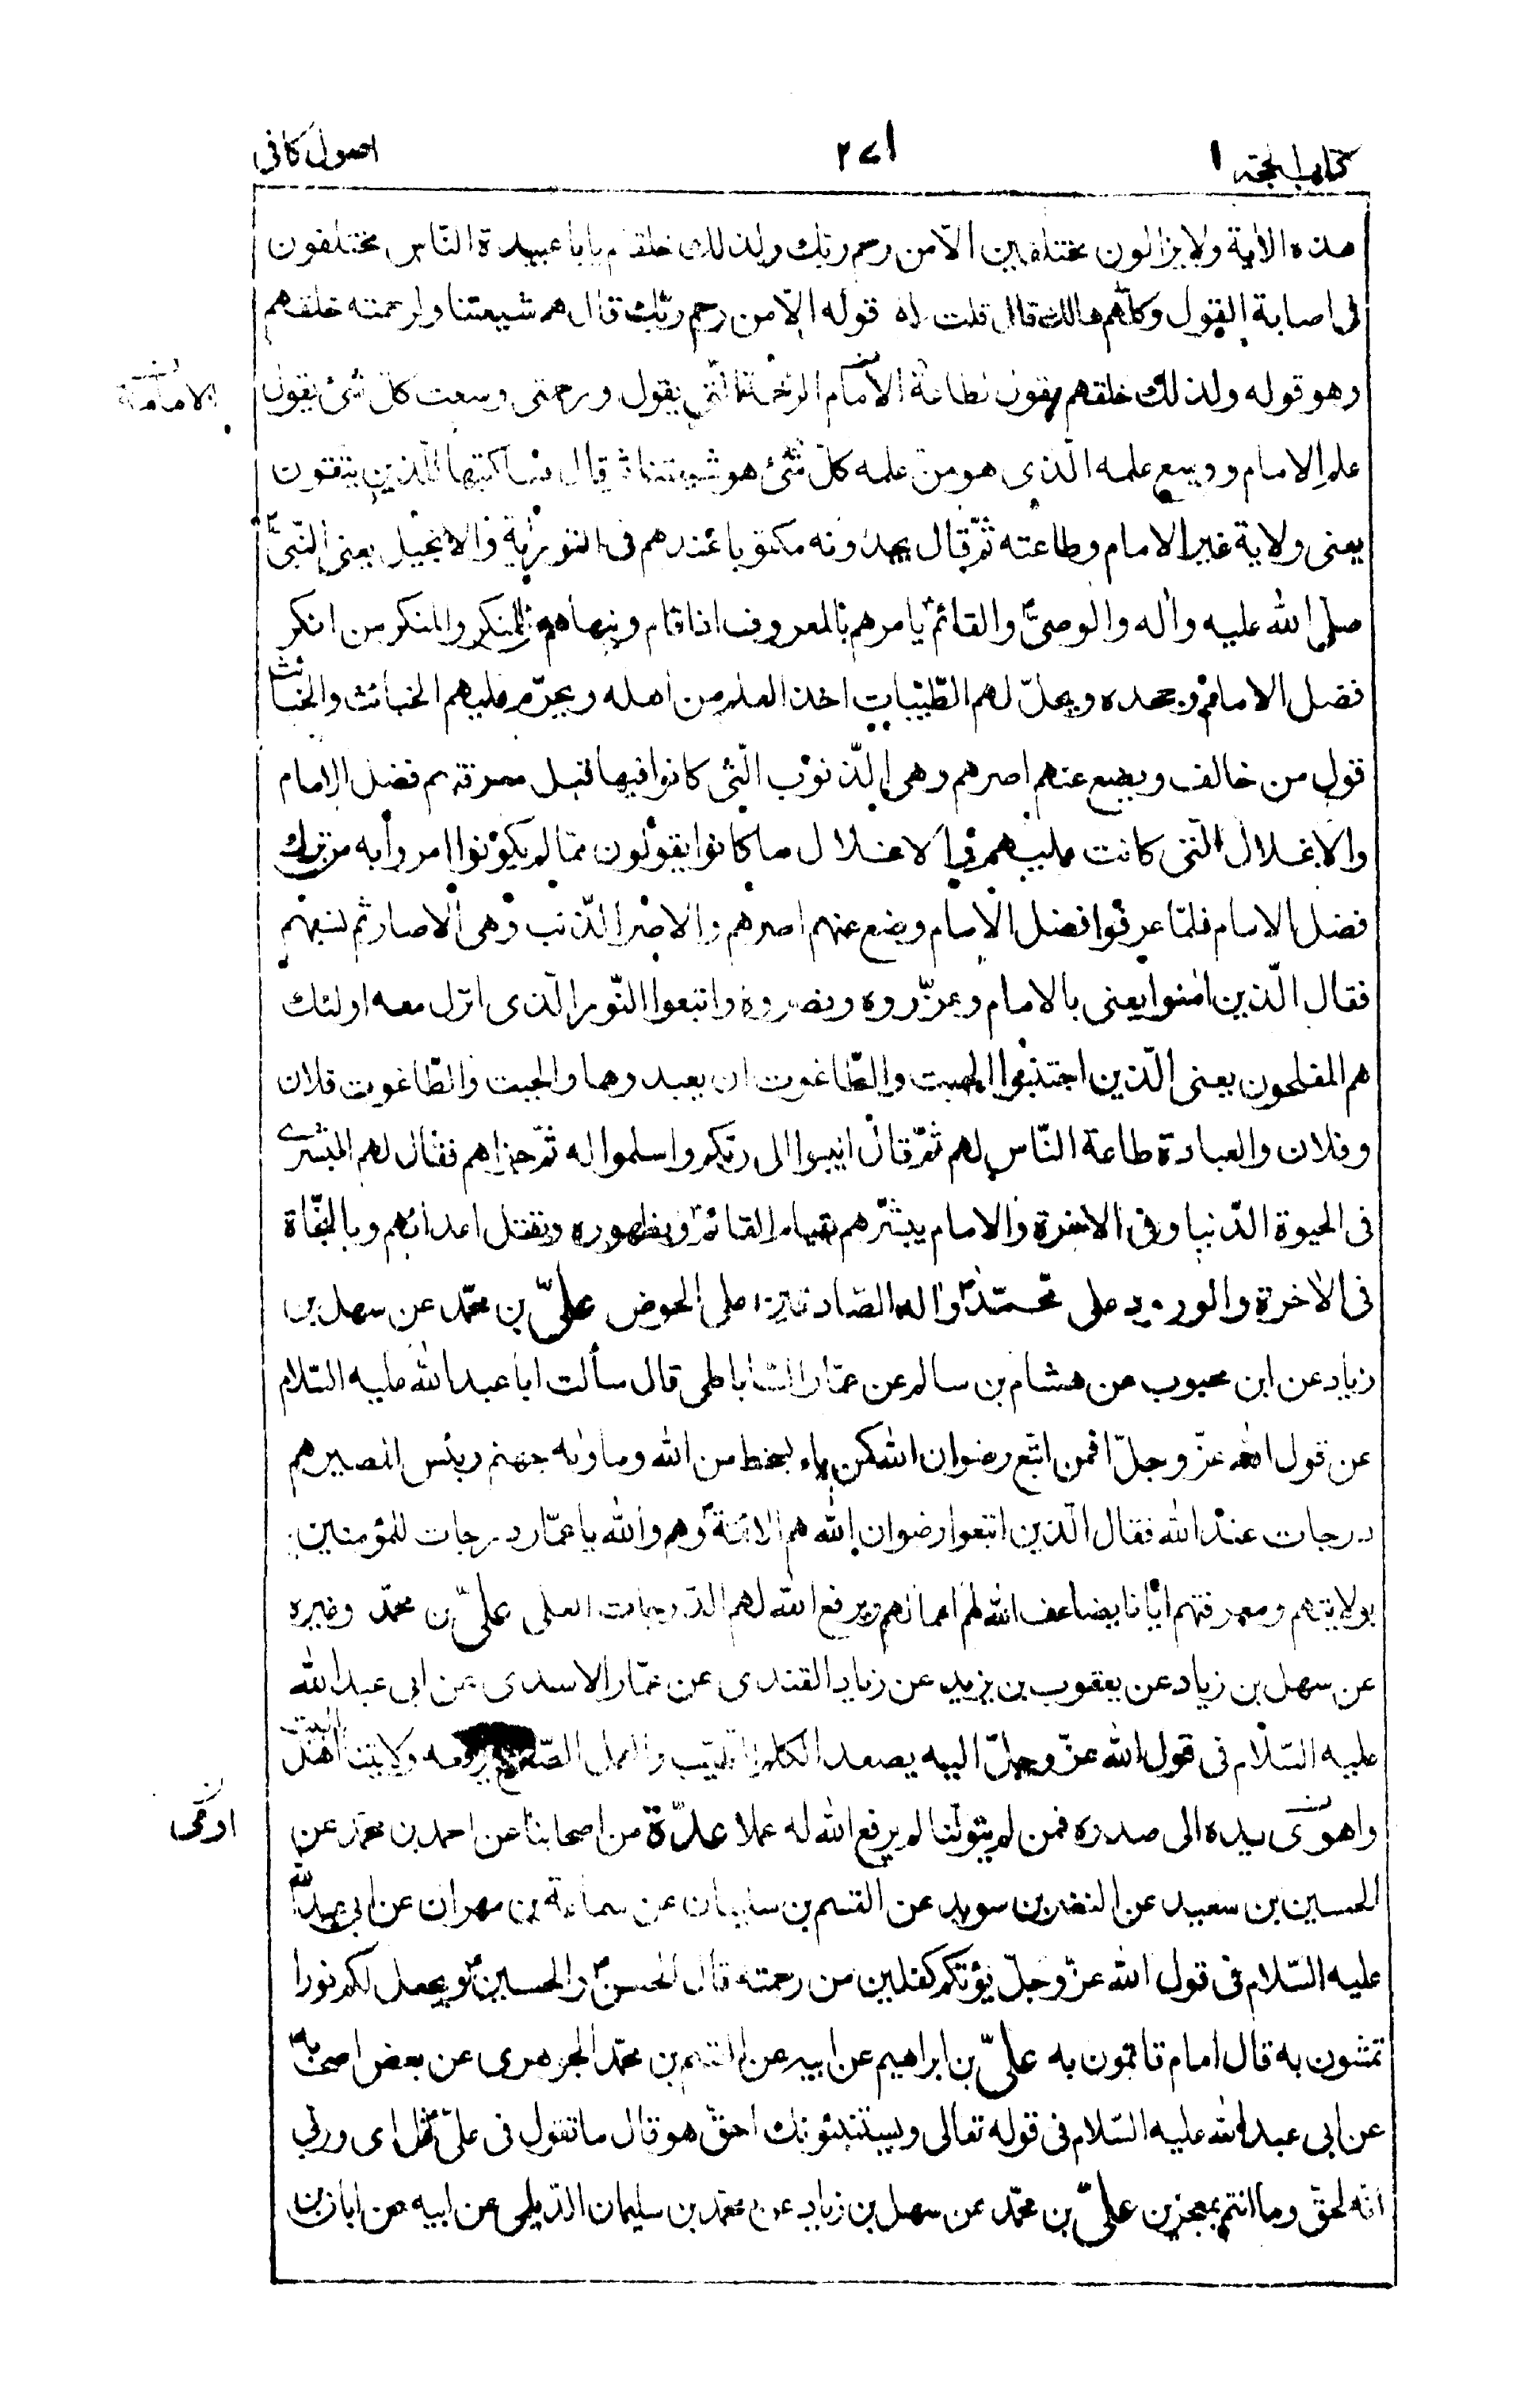 كتاب الحجة
٢٧١
اصول كافى
هذه الاية ولا يزالون مختلفين الّا من رحم ربّك ولذلك خلقهم يا با عبيدة النّاس مختلفون
فى اصابة القول وكلّهم هالك قال قلت له قوله الّا من رحم ربّك قال هم شيعتنا ولرحمته خلقهم
وهو قوله ولذلك خلقهم يقول لطاعة الامام الرّحمة الّتى يقول ورحمتى وسعت كلّ شئ يقول
الامامة
علم الامام ووسع علمه الّذى هو من علمه كلّ شئ هو شيعتنا ثمّ قال فساكتبها للّذين يتّقون
يعنى ولاية غير الامام وطاعته ثمّ قال يجدونه مكتوبا عندهم فى التّوراية والانجيل يعنى النّبىّ
صلى الله عليه واله والوصىّ والقائم يامرهم بالمعروف اذا قام وينهاهم عن المنكر والمنكر من انكر
فضل الامام وجحده ويحلّ لهم الطّيّبات اخذ العلم من اهله ويحرّم عليهم الخبائث والخبائث
قول من خالف ويضع عنهم اصرهم وهى الّذنوب الّتى كانوا فيها قبل معرفتهم فضل الامام
والاغلال الّتى كانت عليهم والاغلال ما كانوا يقولون ممّا لم يكونوا امروا به من ترك
فضل الامام فلمّا عرفوا فضل الامام وضع عنهم اصرهم والاصر الذّنب وهى الاصار ثم نسبهم
فقال الّذين امنوا يعنى بالامام وعزّروه ونصروه واتبعوا النّور الّذى انزل معه اولئك
هم المفلحون يعنى الّذين اجتنبوا الجبت والطّاغوت ان يعبدوها والجبت والطّاغوت فلان
وفلان والعبادة طاعة النّاس لهم ثمّ قال انيبوا الى ربّكم واسلموا له ثمّ جزاهم فقال لهم البشرى
فى الحيوة الدّنيا وفى الاخرة والامام يبشّرهم بقيام القائم وبظهوره وبقتل اعدائهم وبالنّجاة
فى الاخرة والورود على محمّد واله الصّادقين على الحوض علىّ بن محمّد عن سهل بن
زياد عن ابن محبوب عن هشام بن سالم عن عمّار السّاباطى قال سألت ابا عبد الله عليه السّلام
عن قول الله عزّ وجلّ افمن اتّبع رضوان الله كمن باء بسخط من الله وماويه جهنم وبئس المصير هم
درجات عند الله فقال الّذين اتبعوا رضوان الله هم الائمّة وهم والله يا عمّار درجات للمؤمنين
بولايتهم ومعرفتهم ايّانا يضاعف الله لهم اعمالهم ويرفع الله لهم الدّرجات العلى علىّ بن محمّد وغيره
عن سهل بن زياد عن يعقوب بن يزيد عن زياد القندى عن عمّار الاسدى عن ابى عبد الله
عليه السّلام فى قول الله عزّ وجلّ اليه يصعد الكلم الطّيّب والعمل الصّالح يرفعه ولايتنا اهل البيت
واهوى بيده الى صدره فمن لم يتولّنا لم يرفع الله له عملا عدّة من اصحابنا عن احمد بن محمّد عن
اومى
الحسين بن سعيد عن النضر بن سويد عن القسم بن سليمان عن سماعة بن مهران عن ابى عبد الله
عليه السّلام فى قول الله عزّ وجلّ يؤتكم كفلين من رحمته قال الحسن والحسين ويجعل لكم نورا
تمشون به قال امام تاتمّون به علىّ بن ابراهيم عن ابيه عن القسم بن محمّد الجوهرى عن بعض اصحابه
عن ابى عبد الله عليه السّلام فى قوله تعالى ويستنبئونك احقّ هو قال ما تقول فى علىّ قل اى وربى
انّه لحقّ وما انتم بمعجزين علىّ بن محمّد عن سهل بن زياد عن محمّد بن سليمان الدّيلمى عن ابيه عن ابان بن